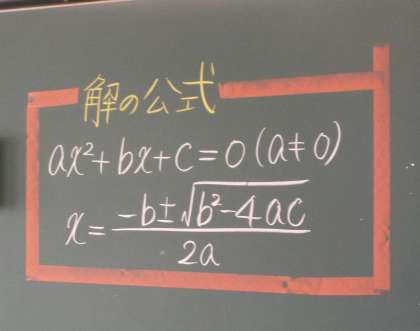 解の公式
ax²+bx+c=0(a≠0)
x=\frac{-b±\sqrt{b²-4ac}}{2a}